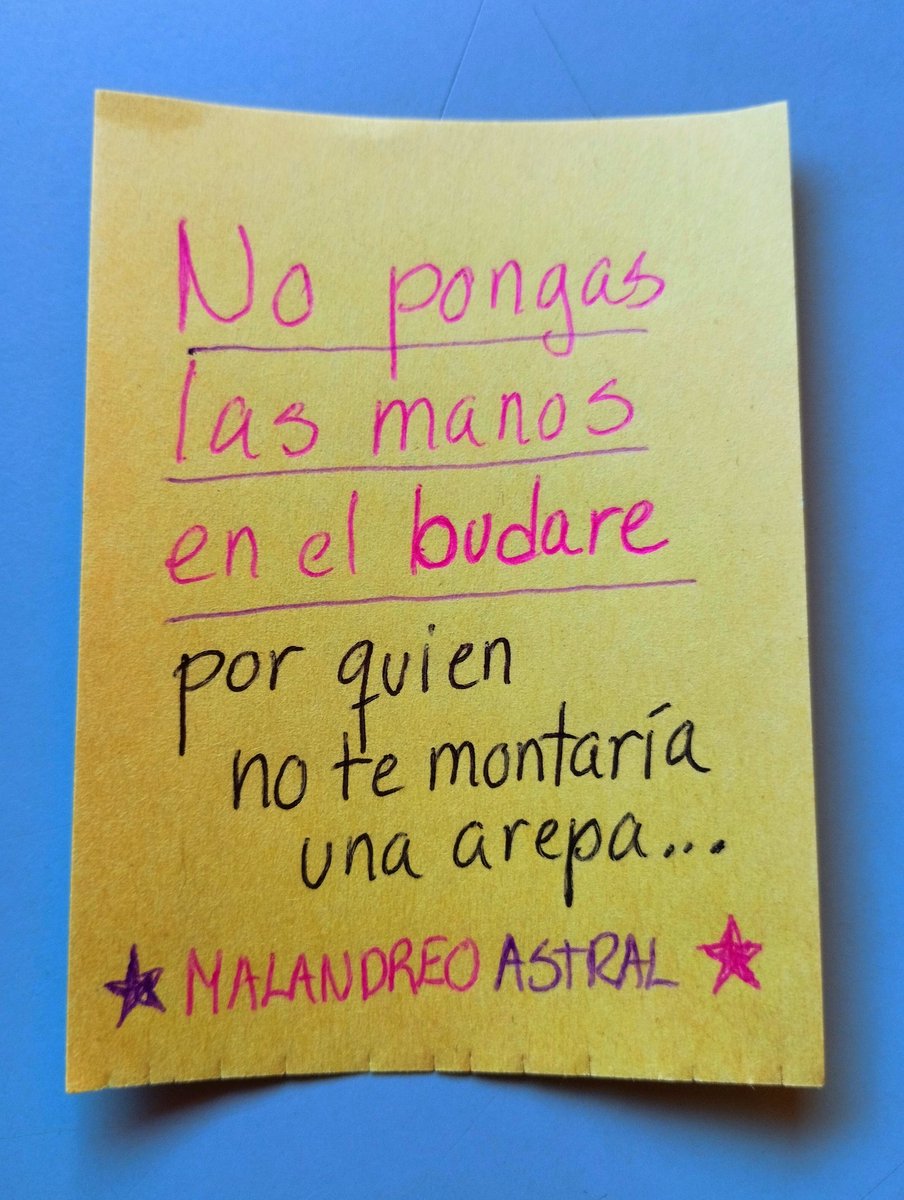 No pongas
las manos
en el budare
por quien
no te montaría
una arepa...
MALANDREO ASTRAL